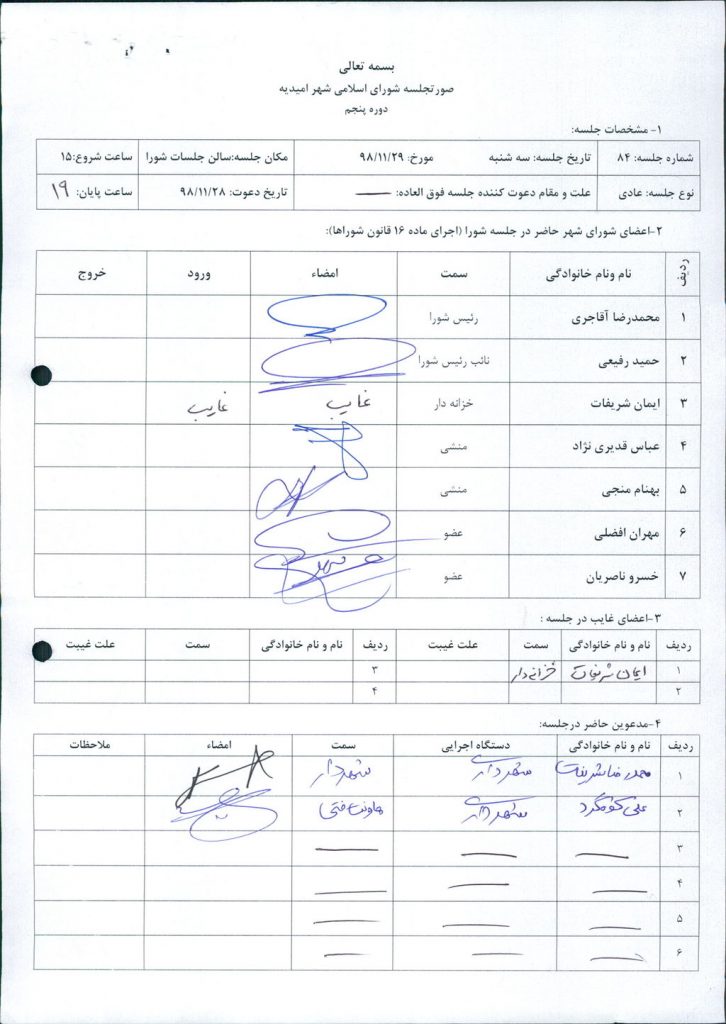 بسمه تعالی
صورتجلسه شورای اسلامی شهر امیدیه
دوره پنجم
۱- مشخصات جلسه:
شماره جلسه: ۸۴ تاریخ جلسه: سه شنبه مورخ: ۹۸/۱۱/۲۹ مکان جلسه:سالن جلسات شورا ساعت شروع:۱۵
نوع جلسه: عادی علت و مقام دعوت کننده جلسه فوق العاده: — تاریخ دعوت: ۹۸/۱۱/۲۸ ساعت پایان: ۱۹
۲-اعضای شورای شهر حاضر در جلسه شورا (اجرای ماده ۱۶ قانون شوراها):
ردیف نام ونام خانوادگی سمت امضاء ورود خروج
۱ محمدرضا آقاجری رئیس شورا
۲ حمید رفیعی نائب رئیس شورا
۳ ایمان شریفات خزانه دار غایب غایب
۴ عباس قدیری نژاد منشی
۵ بهنام منجی منشی
۶ مهران افضلی عضو
۷ خسرو ناصریان عضو
۳-اعضای غایب در جلسه :
ردیف نام و نام خانوادگی سمت علت غیبت ردیف نام و نام خانوادگی سمت علت غیبت
۱ ایمان شریفات خزانه دار ۳
۲ ۴
۴-مدعوین حاضر درجلسه:
ردیف نام و نام خانوادگی دستگاه اجرایی سمت امضاء ملاحظات
۱ محمدرضا شریفات شهرداری شهردار
۲ علی شهرداری معاونت فنی
۳ — — —
۴ — — —
۵ — — —
۶ — — —